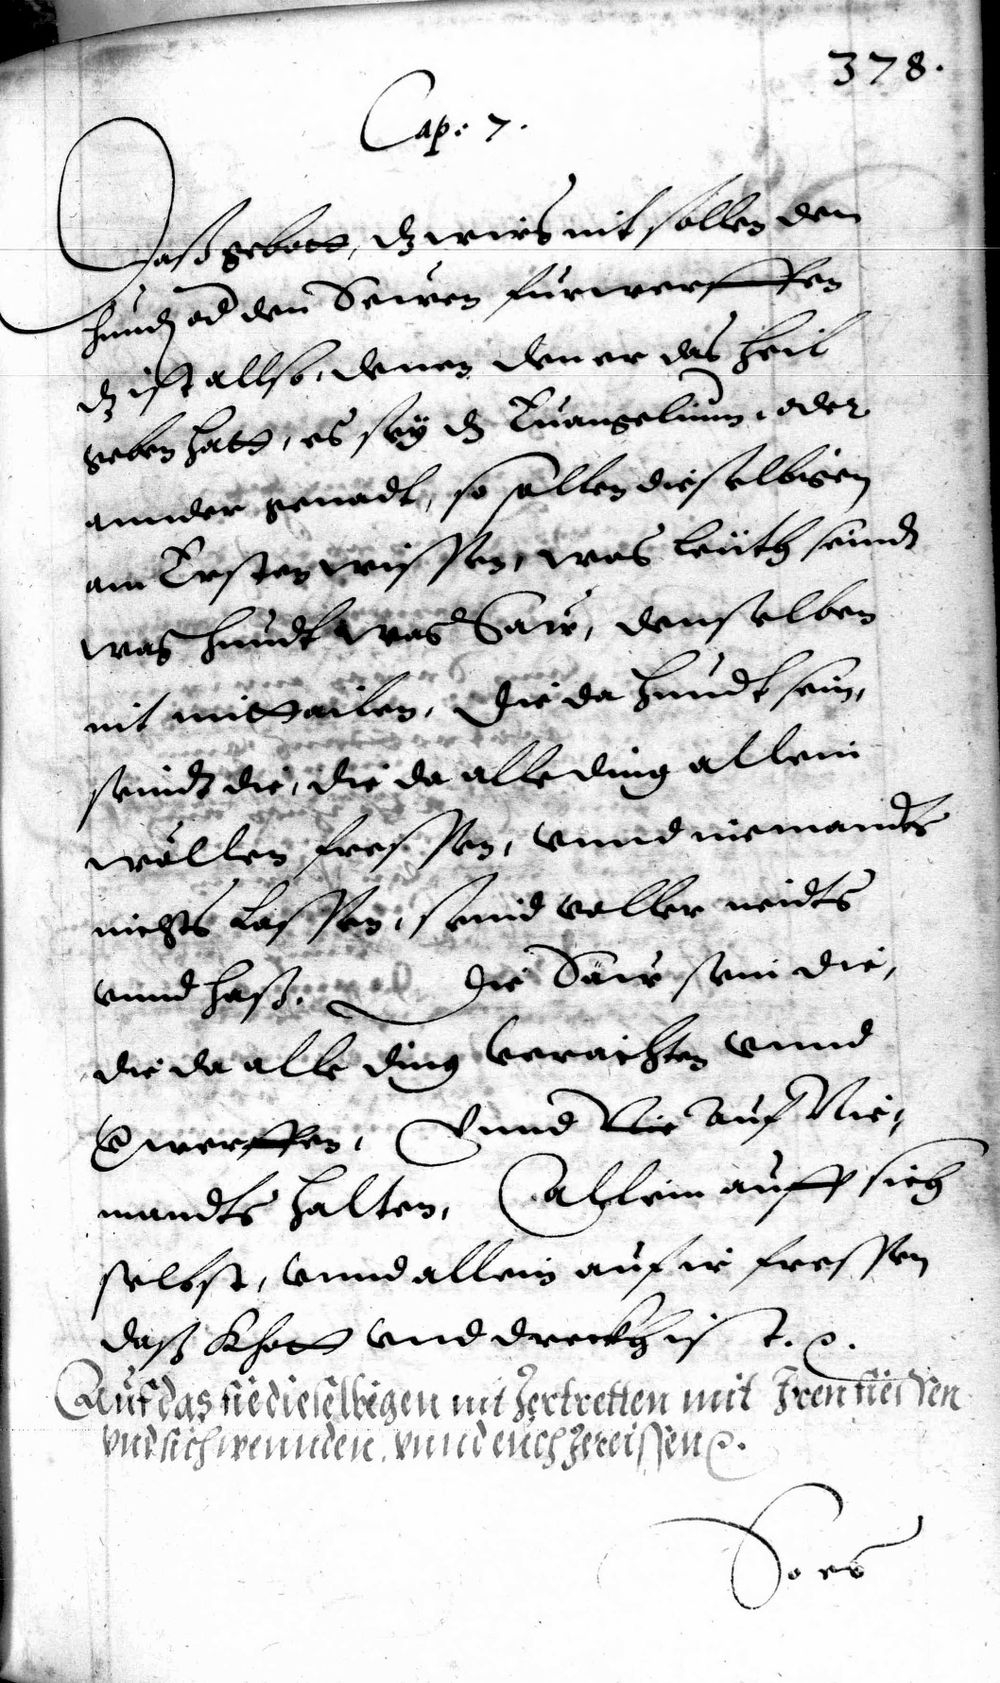 378.
Cap: 7.
Daß gebott, dz wirs nit sollen den
hundt od den Sewen fürwerffen
dz ist allso, denen den er das heil
geben hatt, es seÿ dz Euangelium, oder
annder genadt, so sollen dieselbigen
am Ersten wissen, was leüth seindt
was hundt was Saw, denselben
nit mittailen, die da hundt sein,
seindt die, die da alle ding allein
wöllen fressen, vnnd niemandts
nichts lassen, seind voller neidts
vnnd haß. Die Säw sein die,
die da alle ding verachten vnnd
verwerffen, Vnnd Nie auf Nie,
mandts halten, Allein auff sich
selbst, vnnd allein auf ir fressen
daß Khott vnd dreckh ist. etc.
Auf das sie dieselbigen nit Zertretten mit Iren fiessen
vnd sich wennden, vnnd euch Zereissen etc.
So es